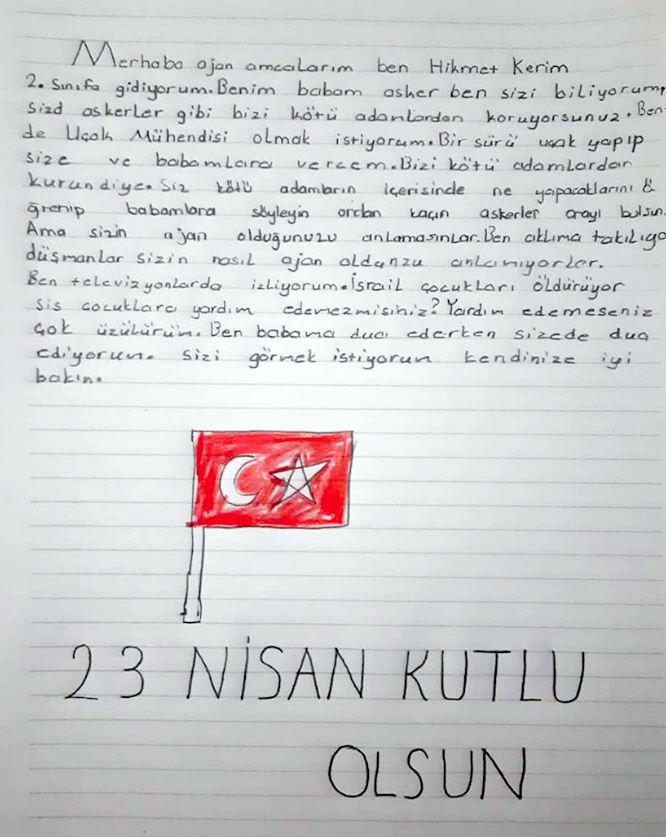 Merhaba ajan amcalarım ben Hikmet Kerim
2. Sınıfa gidiyorum. Benim babam asker ben sizi biliyorum,
Sizd askerler gibi bizi kötü adamlardan koruyorsunuz. Ben
de Uçak Mühendisi olmak istiyorum. Bir sürü uçak yapıp
size ve babamlara vercem. Bizi kötü adamlardan
kurun diye. Siz kötü adamların içerisinde ne yapacaklarını ö
ğrenip babamlara söyleyin ordan kaçın askerler orayı bulsun.
Ama sizin ajan olduğunuzu anlamasınlar. Ben aklıma takılıyo
düşmanlar sizin nasıl ajan oldunzu anlamıyorlar.
Ben televizyonlarda izliyorum. İsrail çocukları öldürüyor
sis çocuklara yardım edemezmisiniz? Yardım edemeseniz
çok üzülürün. Ben babama dua ederken sizede dua
ediyorun. sizi görnek istiyorun kendinize iyi
bakın.
23 NİSAN KUTLU
OLSUN